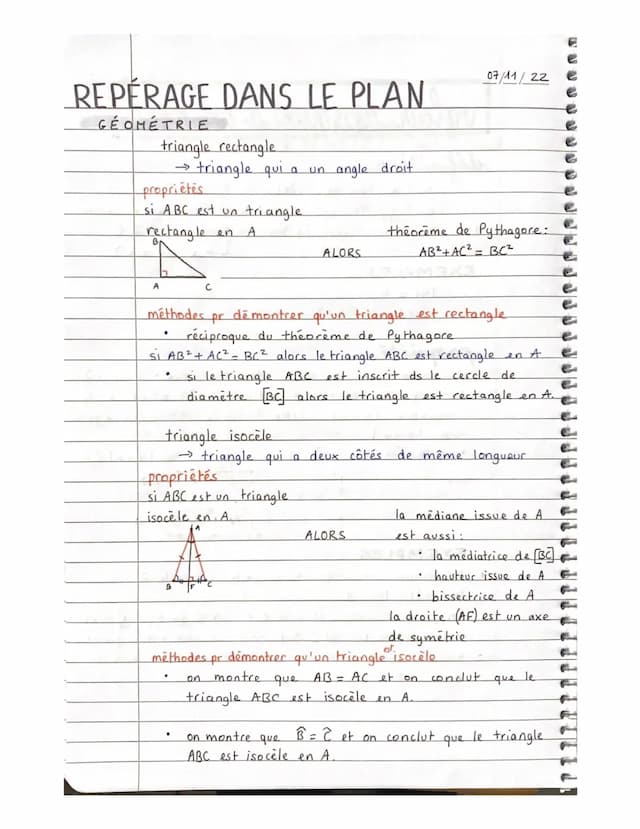 07/11/22
REPÉRAGE DANS LE PLAN
GÉOMÉTRIE
triangle rectangle
→ triangle qui a un angle droit
propriétés
si ABC est un triangle
rectangle en A
théorème de Pythagore:
B
ALORS
AB²+AC² = BC²
A C
méthodes pr démontrer qu'un triangle est rectangle
• réciproque du théorème de Pythagore
si AB²+AC² = BC² alors le triangle ABC est rectangle en A
• si le triangle ABC est inscrit ds le cercle de
diamètre [BC] alors le triangle est rectangle en A.
triangle isocèle
→ triangle qui a deux côtés de même longueur
propriétés
si ABC est un triangle
isocèle en A
la médiane issue de A
A
ALORS
est aussi:
• la médiatrice de [BC]
• hauteur issue de A
B F C
• bissectrice de A
la droite (AF) est un axe
de symétrie
méthodes pr démontrer qu'un triangle est isocèle
• on montre que AB = AC et on conclut que le
triangle ABC est isocèle en A.
• on montre que B̂ = Ĉ et on conclut que le triangle
ABC est isocèle en A.